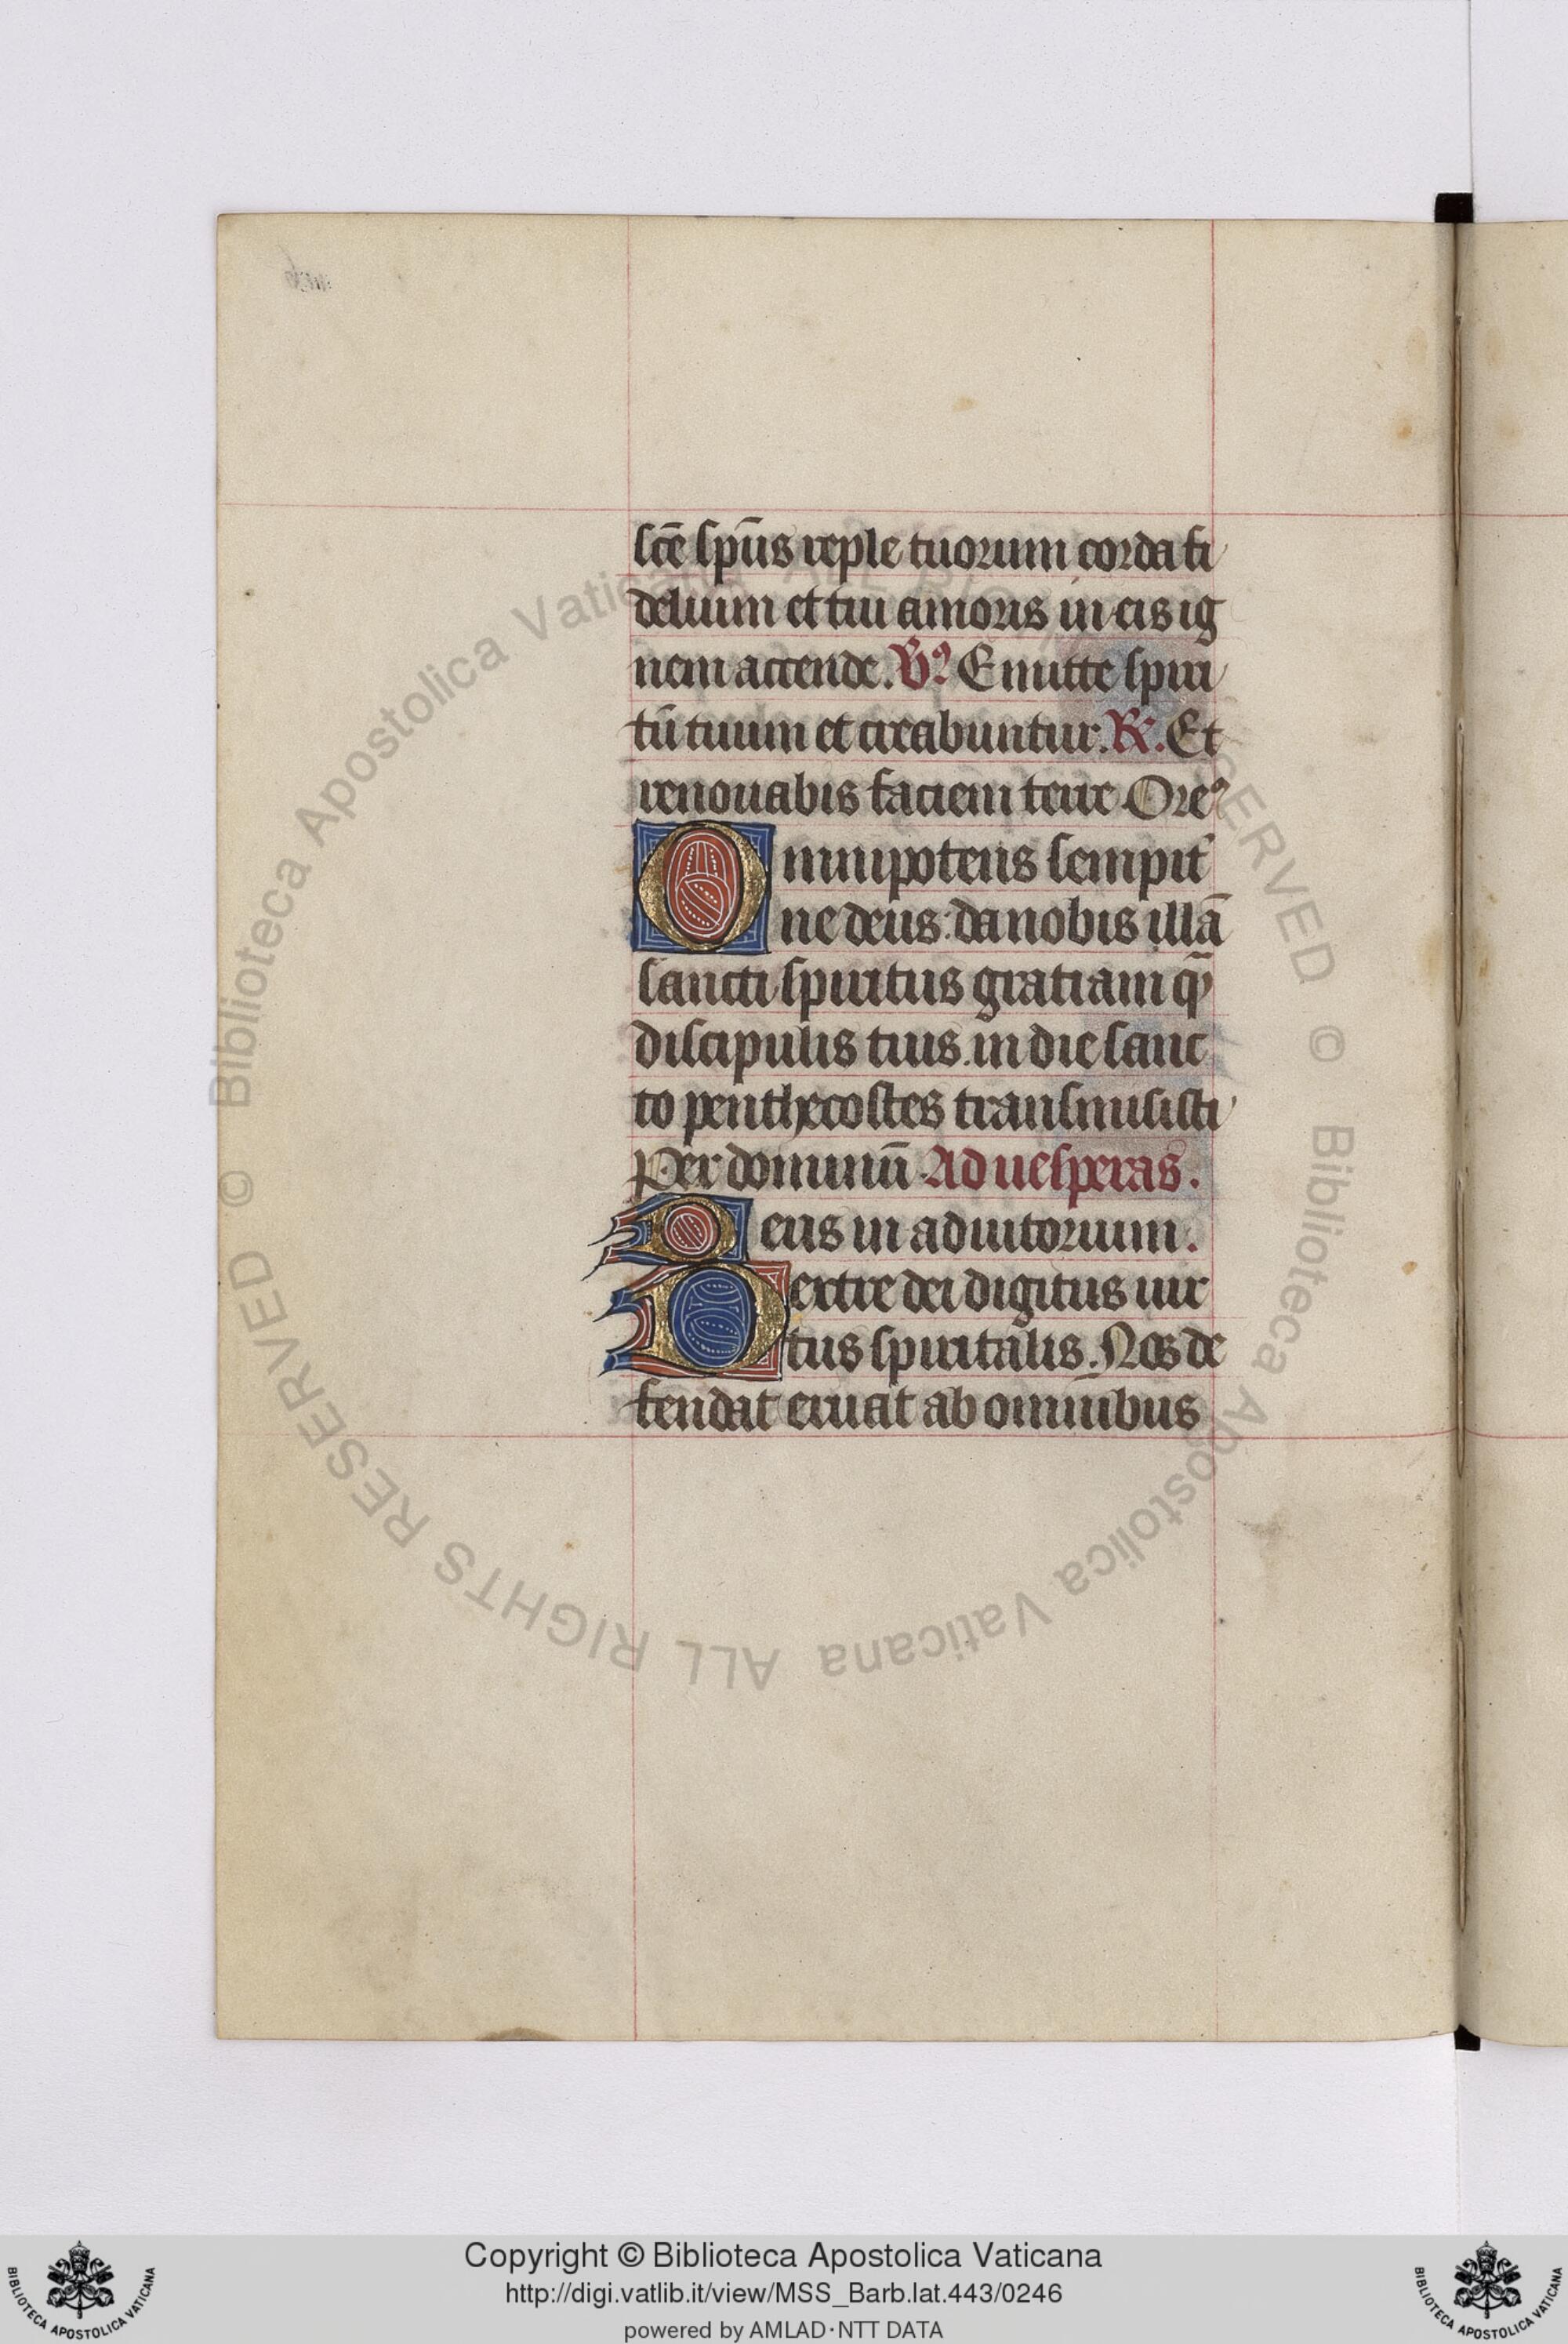 scē sp̄us reple tuorum corda fi
delium et tui amoris in eis ig
nem accende. V̉ Emitte spiri
tū tuum et creabuntur. R̸. Et
renouabis faciem terre Oreꝰ
Omnipotens sempit͛
ne deus: da nobis illā
sancti spiritus gratiam q̄
discipulis tuis. in die sanc
to penthecostes transmisisti
Per dominū Ad uesperas.
Deus in adiutorium.
Dextre dei digitus uir
tus spiritalis. Nos de
fendat eruat ab omnibus
© Biblioteca Apostolica Vaticana ALL RIGHTS RESERVED © Biblioteca Apostolica Vaticana ALL RIGHTS RESERVED
Copyright © Biblioteca Apostolica Vaticana
http://digi.vatlib.it/view/MSS_Barb.lat.443/0246
powered by AMLAD·NTT DATA
BIBLIOTECA APOSTOLICA VATICANA
BIBLIOTECA APOSTOLICA VATICANA